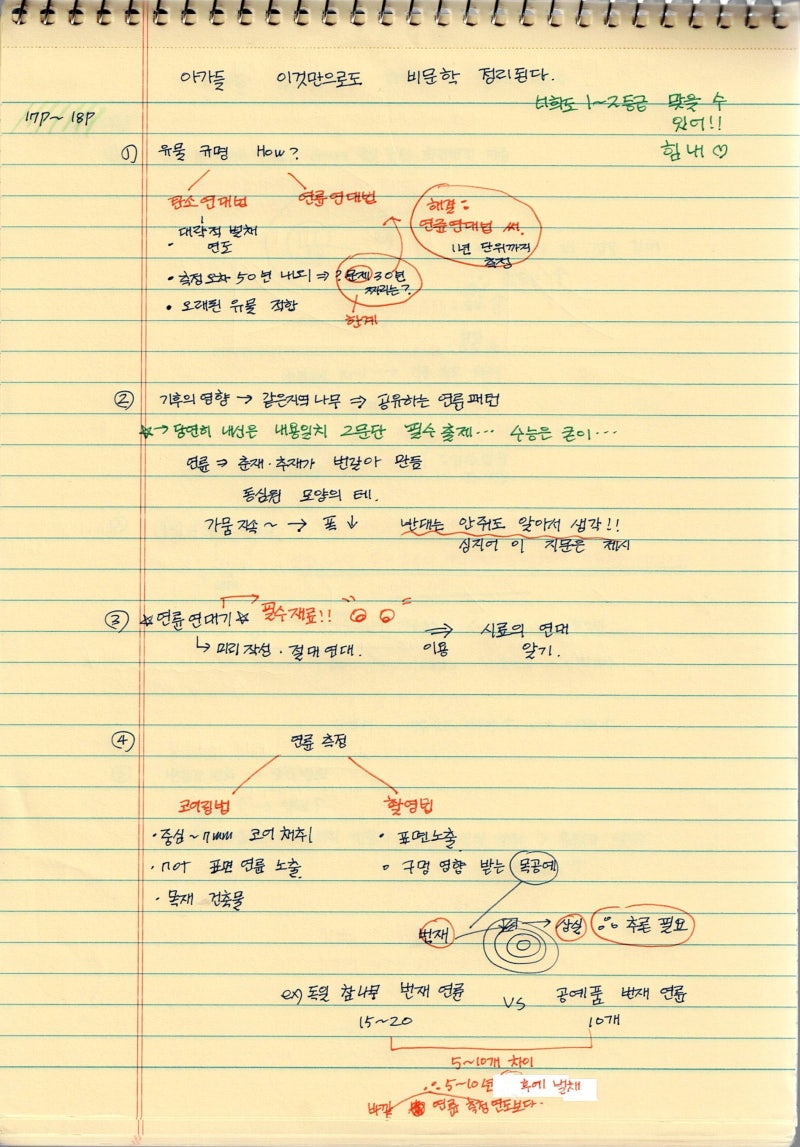 아가들 이것만으로도 비문학 정리된다.
너희도 1~2등급 맞을 수
있어!!
힘내♡
17p~18p
① 유물 규명 How?
탄소연대법 연륜연대법
대략적 벌채
연도
해결:
연륜연대법 써.
1년 단위까지
측정
• 측정오차 50년 내외 ⇒ ? 문제 30년
짜리는?
• 오래된 유물 적합
한계
② 기후의 영향 → 같은지역 나무 ⇒ 공유하는 연륜패턴
☆→ 당연히 내신은 내용일치 2문단 필수출제… 수능은 굳이…
연륜 ⇒ 춘재·추재가 번갈아 만듦
동심원 모양의 테.
가뭄지속~ → 폭 ↓ 반대는 안줘도 알아서 생각!!
심지어 이 지문은 제시
③ ☆연륜연대기☆ 필수재료!!
↳ 미리작성·절대연대. ⇒ 이용 시료의 연대
알기.
④ 연륜 측정
코어링법 촬영법
• 중심~ 7mm 코어 채취
• not 표면 연륜 노출
• 목재 건축물
• 표면노출
• 구멍 영향 받는 목공예
변재 → 상실 ∴ 추론 필요
ex) 독일 참나무 변재 연륜 VS 공예품 변재 연륜
15~20 10개
5~10개 차이
∴ 5~10년 후에 벌채
바깥 연륜 측정연도보다.